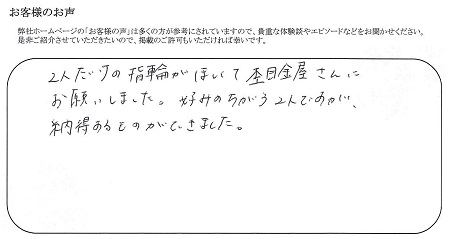 お客様のお声
弊社ホームページの「お客様の声」は多くの方が参考にされていますので、貴重な体験談やエピソードなどをお聞かせください。
是非ご紹介させていただきたいので、掲載のご許可もいただければ幸いです。
2人だけの指輪がほしくて杢目金屋さんに
お願いしました。好みのちがう2人ですが、
納得あるものができました。